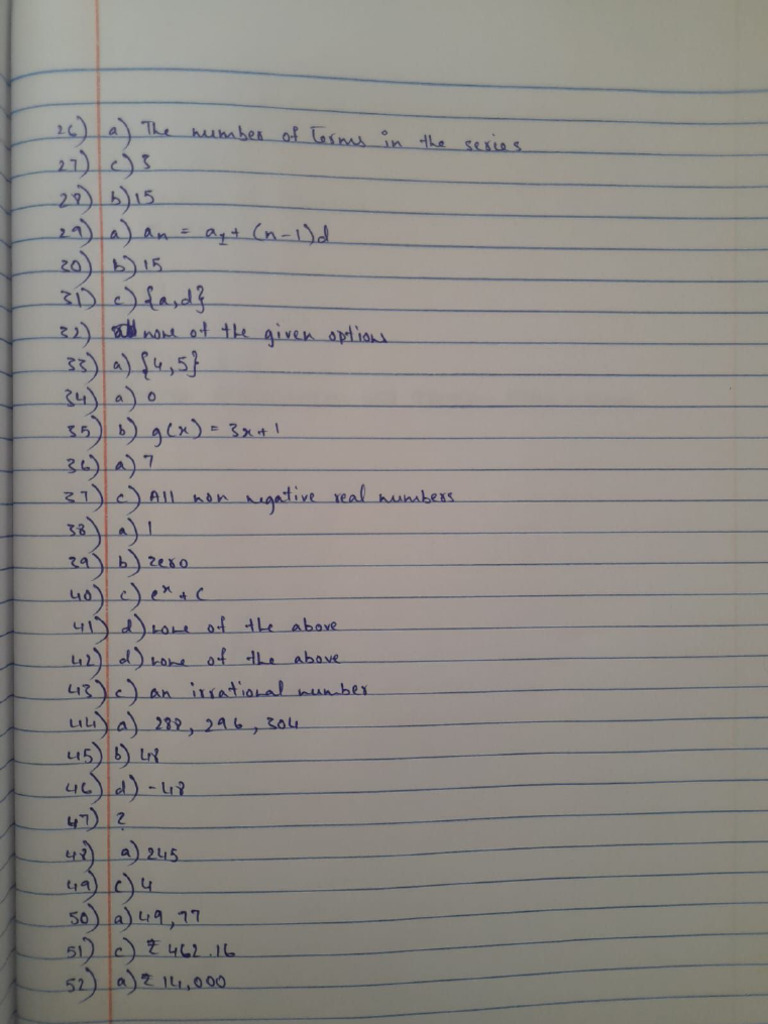 26) a) The number of terms in the series
27) c) 3
28) b) 15
29) a) an = a1 + (n-1)d
30) b) 15
31) c) {a,d}
32) none of the given options
33) a) {4,5}
34) a) 0
35) b) g(x) = 3x+1
36) a) 7
37) c) All non negative real numbers
38) a) 1
39) b) zero
40) c) e^x + c
41) d) none of the above
42) d) none of the above
43) c) an irrational number
44) a) 288, 296, 304
45) b) 48
46) d) -48
47) ?
48) a) 245
49) c) 4
50) a) 49,77
51) c) ₹ 462.16
52) a) ₹ 14,000